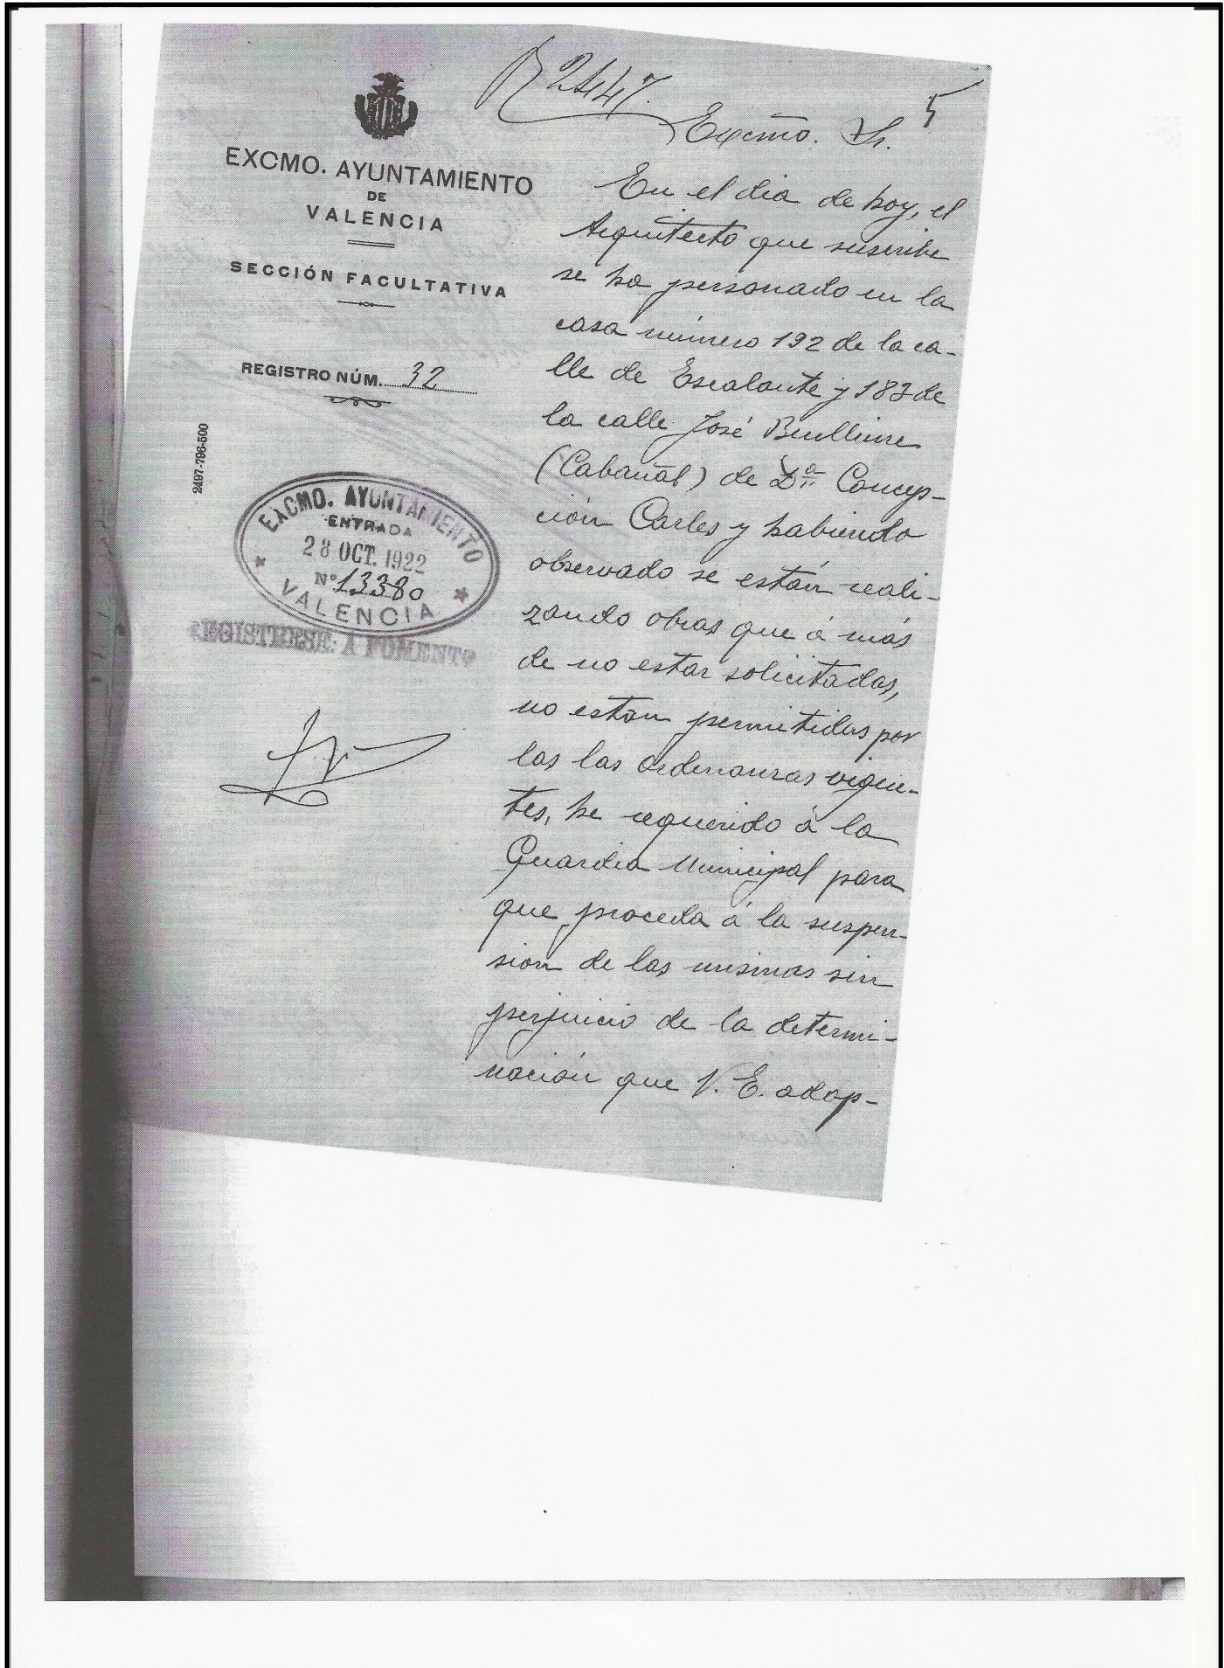 R 2447.
5
Excmo. Sr.
EXCMO. AYUNTAMIENTO
DE
VALENCIA
SECCIÓN FACULTATIVA
REGISTRO NÚM. 32
2497-796-500
EXCMO. AYUNTAMIENTO
ENTRADA
28 OCT. 1922
Nº 13380
VALENCIA
REGISTRESE: A FOMENTO
En el dia de hoy, el
Arquitecto que suscribe
se ha personado en la
casa número 192 de la ca-
lle de Escalante y 183 de
la calle José Benlliure
(Cabañal) de Dª Concep-
ción Carles y habiendo
observado se están reali-
zando obras que á más
de no estar solicitadas,
no estan permitidas por
las las Ordenanzas vigen-
tes, he requerido á la
Guardia Municipal para
que proceda á la suspen-
sion de las mismas sin
perjuicio de la determi-
nación que V. E. adop-